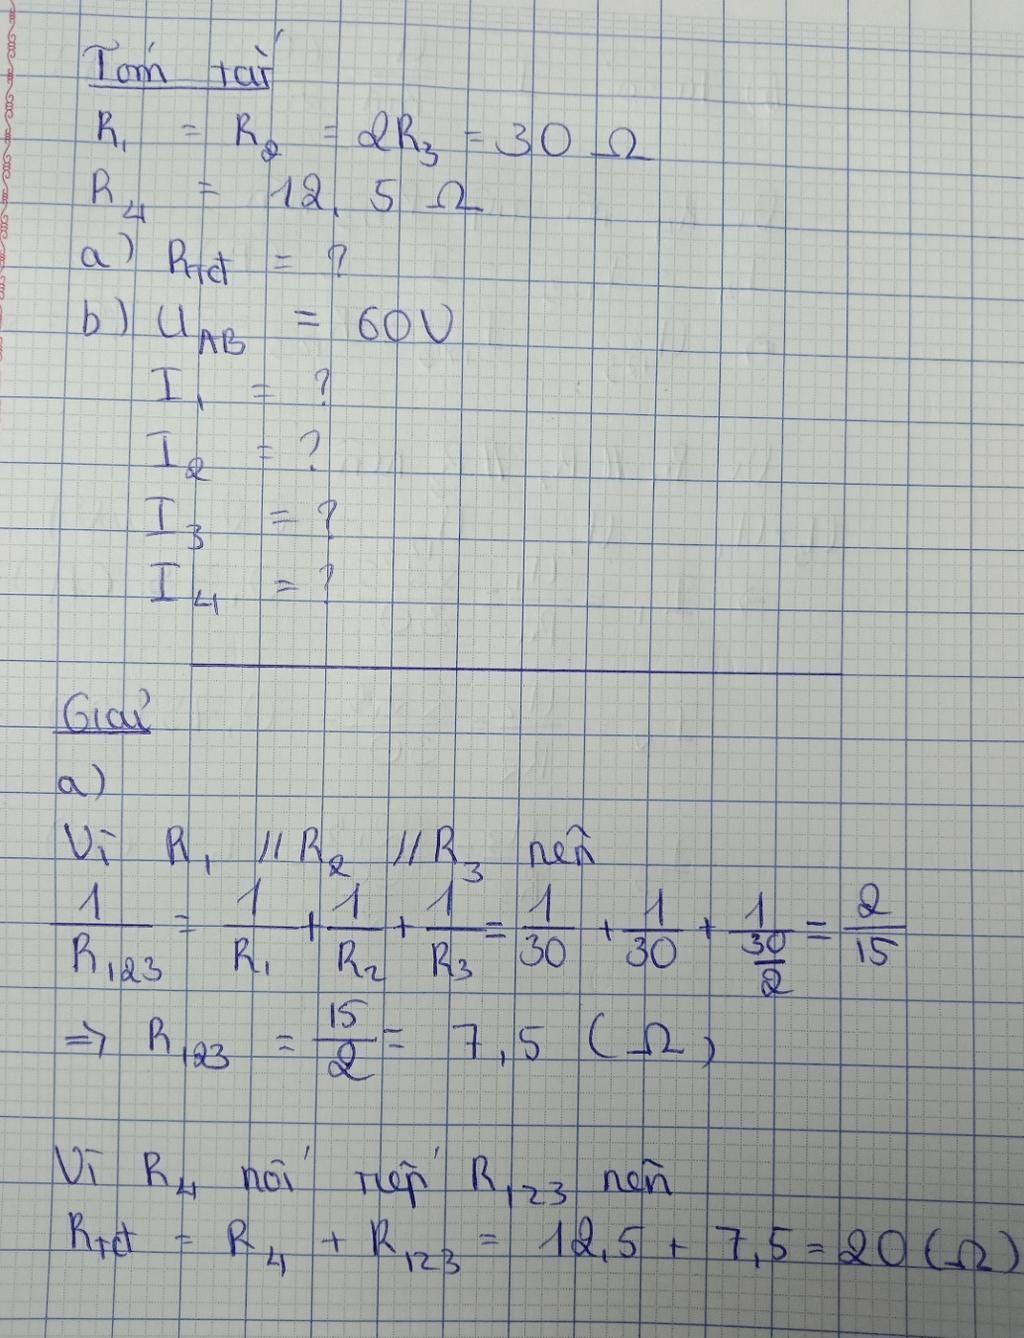 Tóm tắt
R₁ = R₂ = 2R₃ = 30 Ω
R₄ = 12,5 Ω
a) Rtđ = ?
b) U_AB = 60V
I₁ = ?
I₂ = ?
I₃ = ?
I₄ = ?
Giải
a)
Vì R₁ // R₂ // R₃ nên
1/R₁₂₃ = 1/R₁ + 1/R₂ + 1/R₃ = 1/30 + 1/30 + 1/(30/2) = 2/15
=> R₁₂₃ = 15/2 = 7,5 (Ω)
Vì R₄ nối tiếp R₁₂₃ nên
Rtđ = R₄ + R₁₂₃ = 12,5 + 7,5 = 20 (Ω)